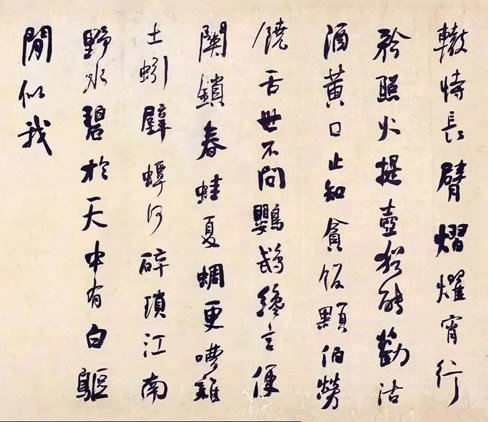 轍恃長臂熠燿宵行
矜照火提壺猶能勸沽
酒黃口止知貪飯顆伯勞
饒舌世不問鸚鵡纔言便
關鎖春蛙夏蜩更嘈雜
土蚓壁蟫何碎瑣江南
野水碧於天中有白鷗
閒似我